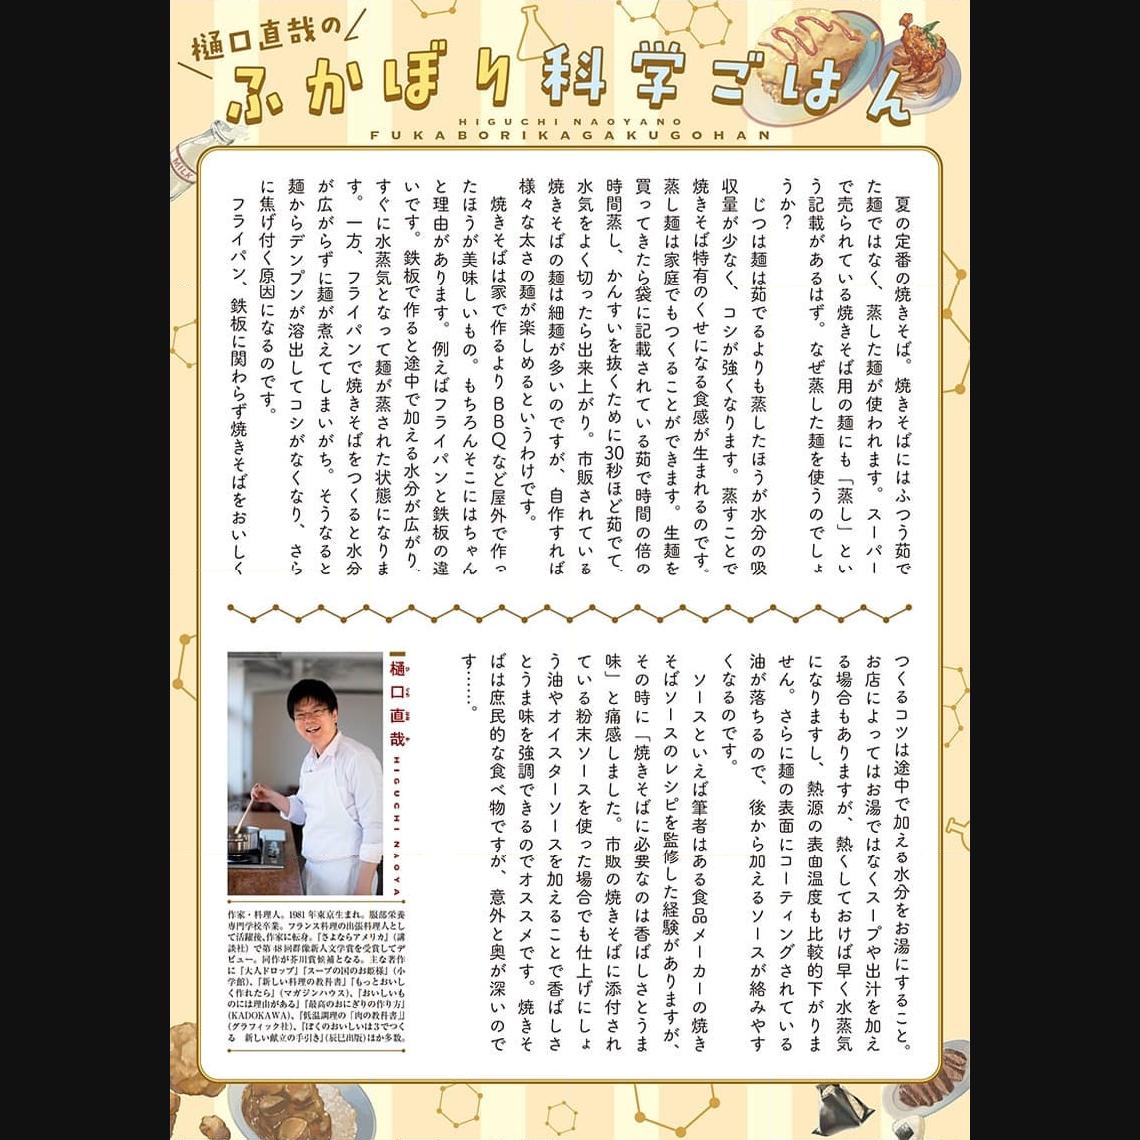 樋口直哉の
ふかぼり科学ごはん
HIGUCHI NAOYANO
FUKABORIKAGAKUGOHAN
MILK
夏の定番の焼きそば。焼きそばにはふつう茹で
た麺ではなく、蒸した麺が使われます。スーパー
で売られている焼きそば用の麺にも「蒸し」とい
う記載があるはず。なぜ蒸した麺を使うのでしょ
うか?
じつは麺は茹でるよりも蒸したほうが水分の吸
収量が少なく、コシが強くなります。蒸すことで
焼きそば特有のくせになる食感が生まれるのです。
蒸し麺は家庭でもつくることができます。生麺を
買ってきたら袋に記載されている茹で時間の倍の
時間蒸し、かんすいを抜くために30秒ほど茹でて、
水気をよく切ったら出来上がり。市販されている
焼きそばの麺は細麺が多いのですが、自作すれば
様々な太さの麺が楽しめるというわけです。
焼きそばは家で作るよりBBQなど屋外で作っ
たほうが美味しいもの。もちろんそこにはちゃん
と理由があります。例えばフライパンと鉄板の違
いです。鉄板で作ると途中で加える水分が広がり、
すぐに水蒸気となって麺が蒸された状態になりま
す。一方、フライパンで焼きそばをつくると水分
が広がらずに麺が煮えてしまいがち。そうなると
麺からデンプンが溶出してコシがなくなり、さら
に焦げ付く原因になるのです。
フライパン、鉄板に関わらず焼きそばをおいしく
つくるコツは途中で加える水分をお湯にすること。
お店によってはお湯ではなくスープや出汁を加え
る場合もありますが、熱くしておけば早く水蒸気
になりますし、熱源の表面温度も比較的下がりま
せん。さらに麺の表面にコーティングされている
油が落ちるので、後から加えるソースが絡みやす
くなるのです。
ソースといえば筆者はある食品メーカーの焼き
そばソースのレシピを監修した経験がありますが、
その時に「焼きそばに必要なのは香ばしさとうま
味」と痛感しました。市販の焼きそばに添付され
ている粉末ソースを使った場合でも仕上げにしょ
う油やオイスターソースを加えることで香ばしさ
とうま味を強調できるのでオススメです。焼きそ
ばは庶民的な食べ物ですが、意外と奥が深いので
す……。
樋口直哉 HIGUCHI NAOYA
作家・料理人。1981年東京生まれ。服部栄養
専門学校卒業。フランス料理の出張料理人とし
て活躍後、作家に転身。『さよならアメリカ』(講
談社)で第48回群像新人文学賞を受賞してデ
ビュー。同作が芥川賞候補となる。主な著作
に『大人ドロップ』『スープの国のお姫様』(小
学館)、『新しい料理の教科書』『もっとおいし
く作れたら』(マガジンハウス)、『おいしいも
のには理由がある』『最高のおにぎりの作り方』
(KADOKAWA)、『低温調理の「肉の教科書」』
(グラフィック社)、『ぼくのおいしいは3でつく
る 新しい献立の手引き』(辰巳出版)ほか多数。